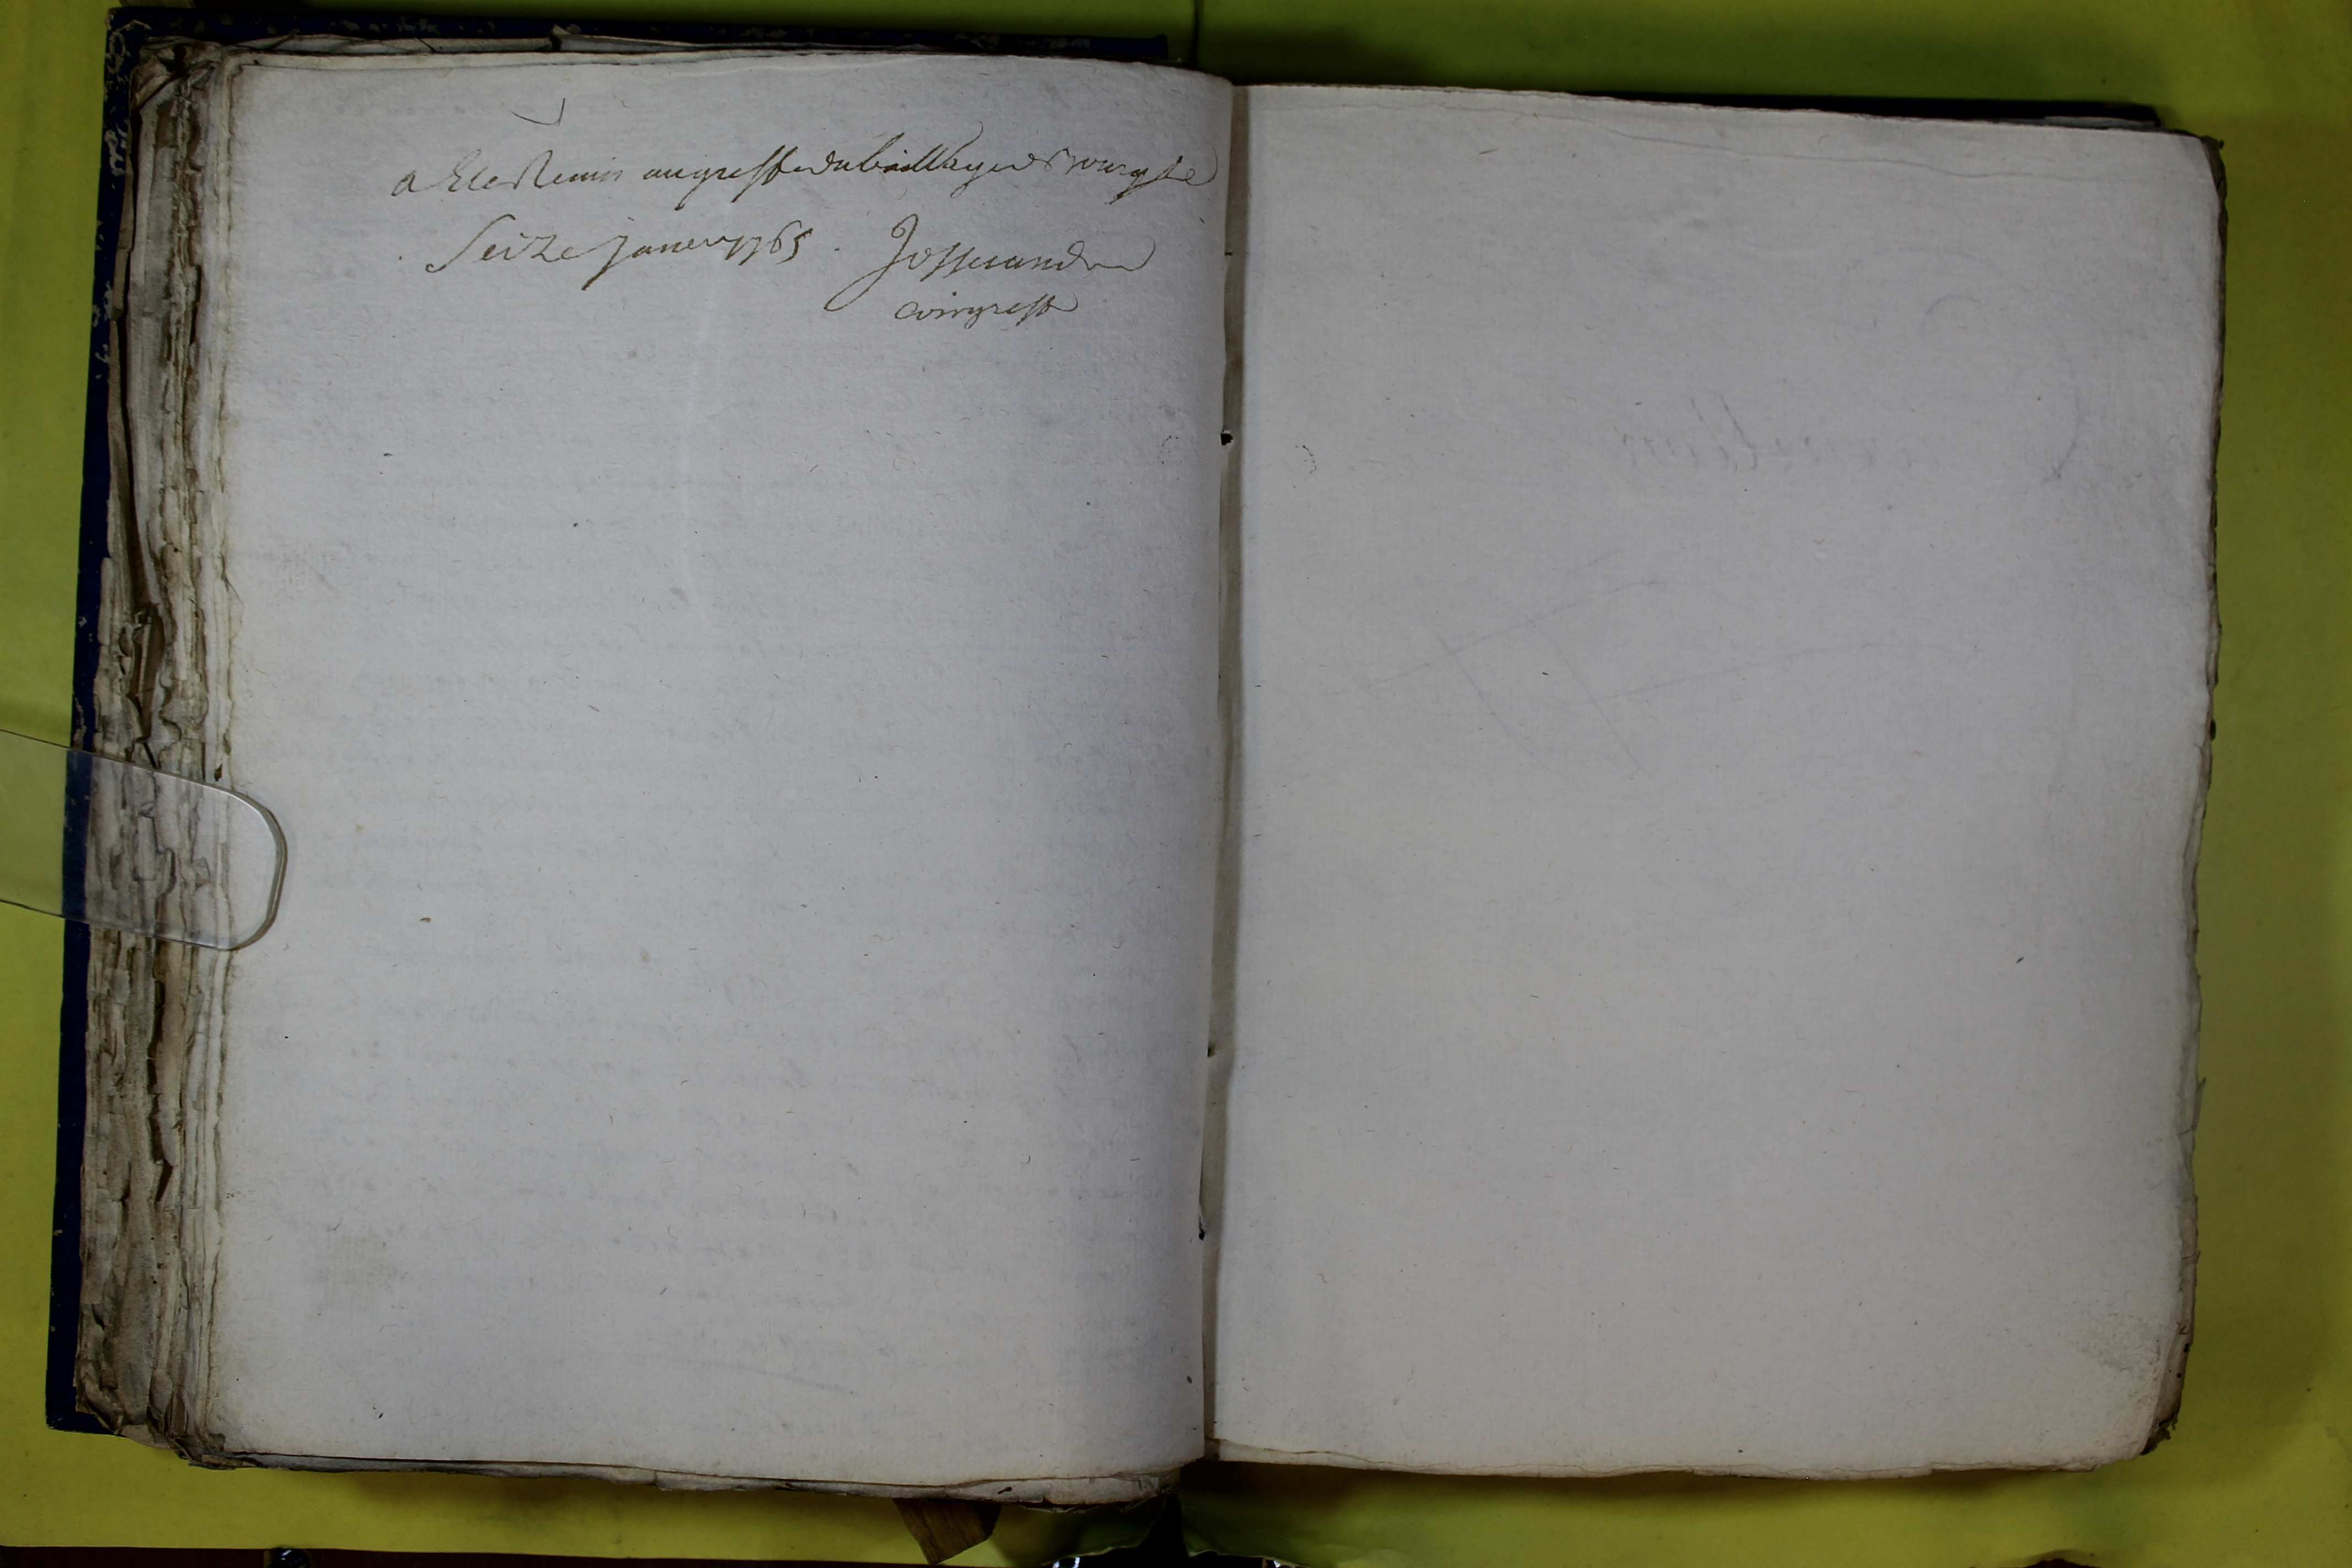 a Ete Remis au greffe du bailliage de Bourg le
Seize janvier 1765. Josserand
commgreff